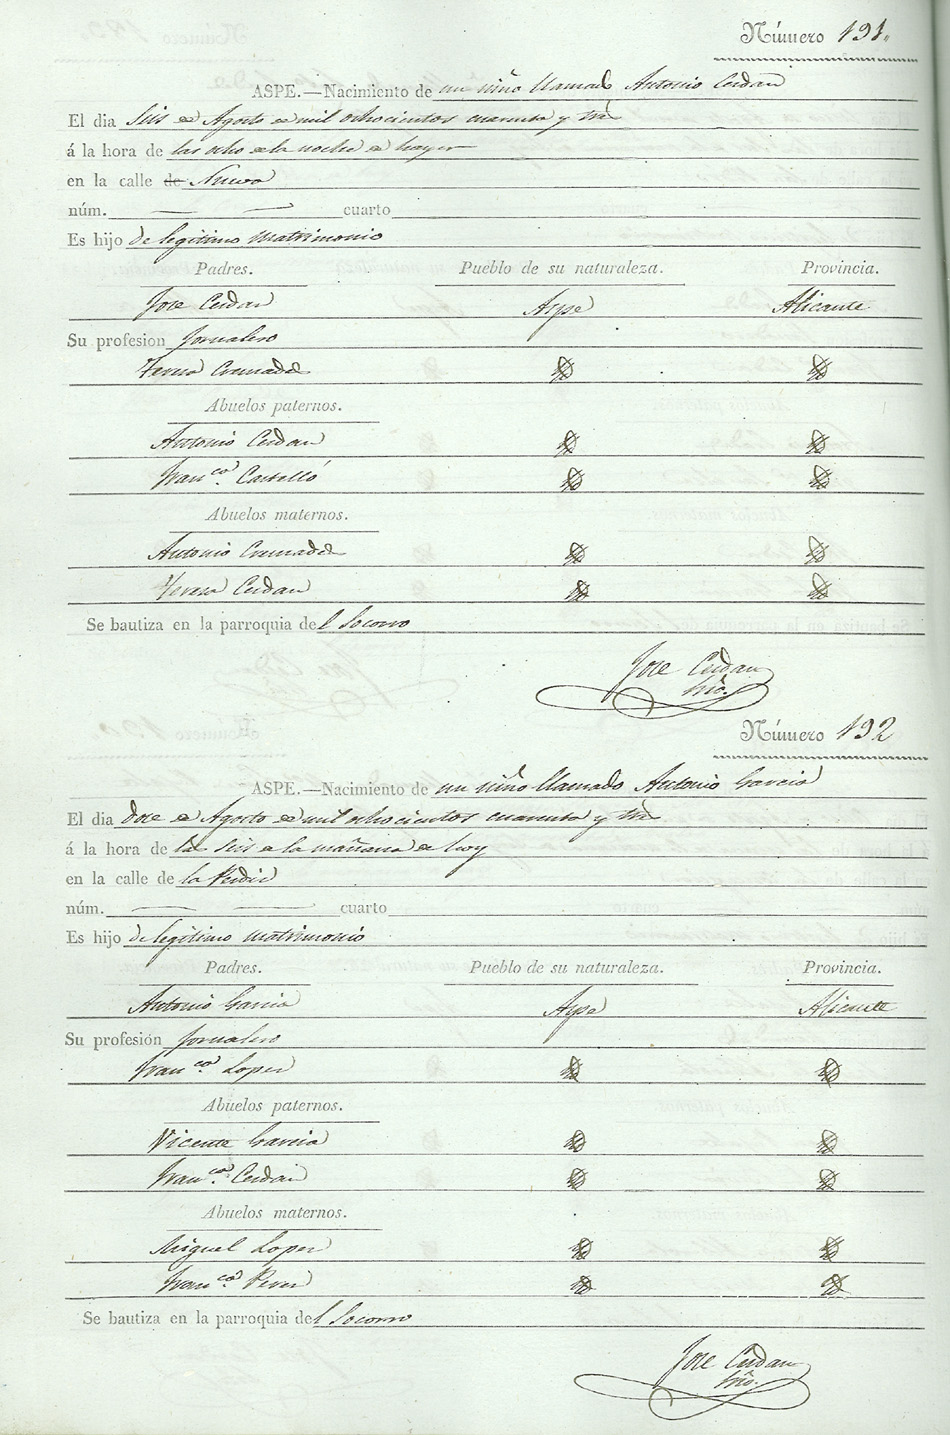 Número 191.
ASPE.—Nacimiento de un niño llamado Antonio Cerdan
El dia seis de Agosto de mil ochocientos cuarenta y tres
á la hora de las ocho de la noche de hayer
en la calle de Nueva
núm. — — cuarto
Es hijo de legitimo Matrimonio
Padres. Pueblo de su naturaleza. Provincia.
Jose Cerdan Aspe Alicante
Su profesion Jornalero
Teresa Cremades
Abuelos paternos.
Antonio Cerdan
Franca. Castelló
Abuelos maternos.
Antonio Cremades
Teresa Cerdan
Se bautiza en la parroquia del Socorro
Jose Cerdan
Srio.
Número 192
ASPE.—Nacimiento de un niño llamado Antonio Garcia
El dia doce de Agosto de mil ochocientos cuarenta y tres
á la hora de las seis de la mañana de hoy
en la calle de la Perdiz
núm. — — cuarto
Es hijo de legitimo matrimonio
Padres. Pueblo de su naturaleza. Provincia.
Antonio Garcia Aspe Alicante
Su profesión Jornalero
Franca. Lopez
Abuelos paternos.
Vicente Garcia
Franca. Cerdan
Abuelos maternos.
Miguel Lopez
Franca. Perez
Se bautiza en la parroquia del Socorro
Jose Cerdan
Srio.